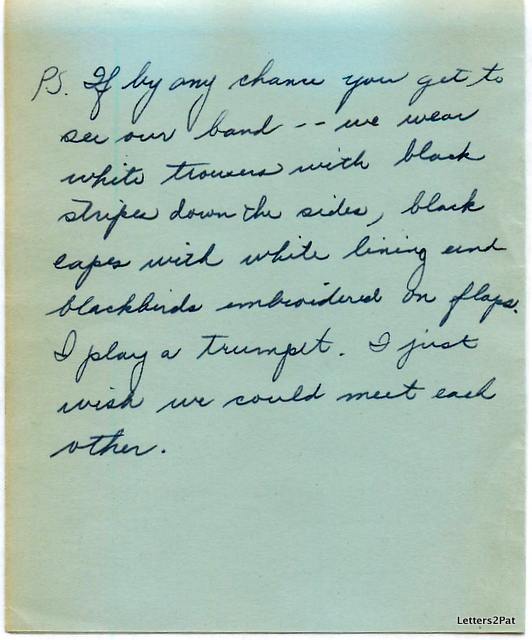 P.S. If by any chance you get to
see our band -- we wear
white trousers with black
stripes down the sides, black
capes with white lining and
blackbirds embroidered on flaps.
I play a trumpet. I just
wish we could meet each
other.
Letters2Pat